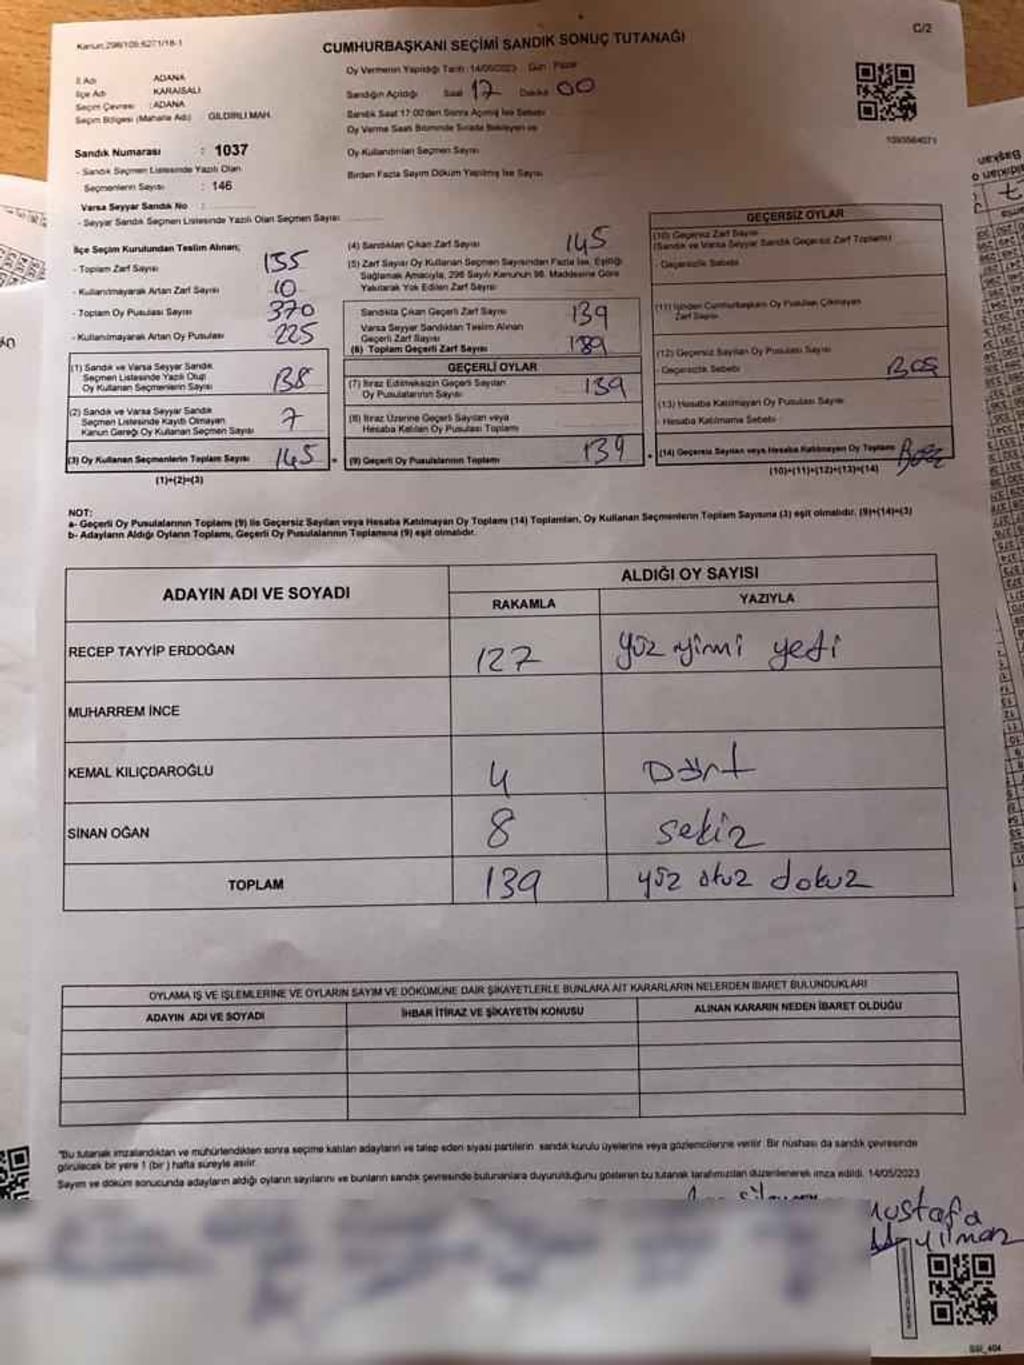 Kanun:298/105;6271/18-1
C/2
CUMHURBAŞKANI SEÇİMİ SANDIK SONUÇ TUTANAĞI
İl Adı ADANA
İlçe Adı KARAİSALI
Seçim Çevresi : ADANA
Seçim Bölgesi (Mahalle Adı) GILDIRLI MAH.
Sandık Numarası : 1037
- Sandık Seçmen Listesinde Yazılı Olan
Seçmenlerin Sayısı : 146
Varsa Seyyar Sandık No :
- Seyyar Sandık Seçmen Listesinde Yazılı Olan Seçmen Sayısı
Oy Vermenin Yapıldığı Tarih :14/05/2023 Gün : Pazar
Sandığın Açıldığı Saat 17 Dakika 00
Sandık Saat 17:00'den Sonra Açılmış İse Sebebi
Oy Verme Saati Bitiminde Sırada Bekleyen ve
Oy Kullandırılan Seçmen Sayısı
Birden Fazla Sayım Döküm Yapılmış İse Sayısı
İlçe Seçim Kurulundan Teslim Alınan;
- Toplam Zarf Sayısı 155
- Kullanılmayarak Artan Zarf Sayısı 10
- Toplam Oy Pusulası Sayısı 370
- Kullanılmayarak Artan Oy Pusulası 225
(1) Sandık ve Varsa Seyyar Sandık
Seçmen Listesinde Yazılı Olup
Oy Kullanan Seçmenlerin Sayısı 138
(2) Sandık ve Varsa Seyyar Sandık
Seçmen Listesinde Kayıtlı Olmayan
Kanun Gereği Oy Kullanan Seçmen Sayısı 7
(3) Oy Kullanan Seçmenlerin Toplam Sayısı 145
(1)+(2)=(3)
(4) Sandıktan Çıkan Zarf Sayısı 145
(5) Zarf Sayısı Oy Kullanan Seçmen Sayısından Fazla İse, Eşitliği
Sağlamak Amacıyla, 298 Sayılı Kanunun 98. Maddesine Göre
Yakılarak Yok Edilen Zarf Sayısı
Sandıkta Çıkan Geçerli Zarf Sayısı 139
Varsa Seyyar Sandıktan Teslim Alınan
Geçerli Zarf Sayısı
(6) Toplam Geçerli Zarf Sayısı 139
GEÇERLİ OYLAR
(7) İtiraz Edilmeksizin Geçerli Sayılan
Oy Pusulalarının Sayısı 139
(8) İtiraz Üzerine Geçerli Sayılan veya
Hesaba Katılan Oy Pusulası Toplamı
(9) Geçerli Oy Pusulalarının Toplamı 139
GEÇERSİZ OYLAR
(10) Geçersiz Zarf Sayısı
(Sandık ve Varsa Seyyar Sandık Geçersiz Zarf Toplamı)
- Geçersizlik Sebebi
(11) İçinden Cumhurbaşkanı Oy Pusulası Çıkmayan
Zarf Sayısı
(12) Geçersiz Sayılan Oy Pusulası Sayısı
- Geçersizlik Sebebi Boş
(13) Hesaba Katılmayan Oy Pusulası Sayısı
- Hesaba Katılmama Sebebi
(14) Geçersiz Sayılan veya Hesaba Katılmayan Oy Toplamı
(10)+(11)+(12)+(13)=(14)
NOT:
a- Geçerli Oy Pusulalarının Toplamı (9) ile Geçersiz Sayılan veya Hesaba Katılmayan Oy Toplamı (14) Toplamları, Oy Kullanan Seçmenlerin Toplam Sayısına (3) eşit olmalıdır. (9)+(14)=(3)
b- Adayların Aldığı Oyların Toplamı, Geçerli Oy Pusulalarının Toplamına (9) eşit olmalıdır.
ADAYIN ADI VE SOYADI
ALDIĞI OY SAYISI
RAKAMLA YAZIYLA
RECEP TAYYİP ERDOĞAN 127 yüz yirmi yedi
MUHARREM İNCE
KEMAL KILIÇDAROĞLU 4 Dört
SİNAN OĞAN 8 sekiz
TOPLAM 139 yüz otuz dokuz
OYLAMA İŞ VE İŞLEMLERİNE VE OYLARIN SAYIM VE DÖKÜMÜNE DAİR ŞİKAYETLERLE BUNLARA AİT KARARLARIN NELERDEN İBARET BULUNDUKLARI
ADAYIN ADI VE SOYADI İHBAR İTİRAZ VE ŞİKAYETİN KONUSU ALINAN KARARIN NEDEN İBARET OLDUĞU
"Bu tutanak imzalandıktan ve mühürlendikten sonra seçime katılan adayların ve talep eden siyasi partilerin sandık kurulu üyelerine veya gözlemcilerine verilir. Bir nüshası da sandık çevresinde
görülecek bir yere 1 (bir) hafta süreyle asılır.
Sayım ve döküm sonucunda adayların aldığı oyların sayılarını ve bunların sandık çevresinde bulunanlara duyurulduğunu gösteren bu tutanak tarafımızdan düzenlenerek imza edildi. 14/05/2023
Mustafa
Yılmaz